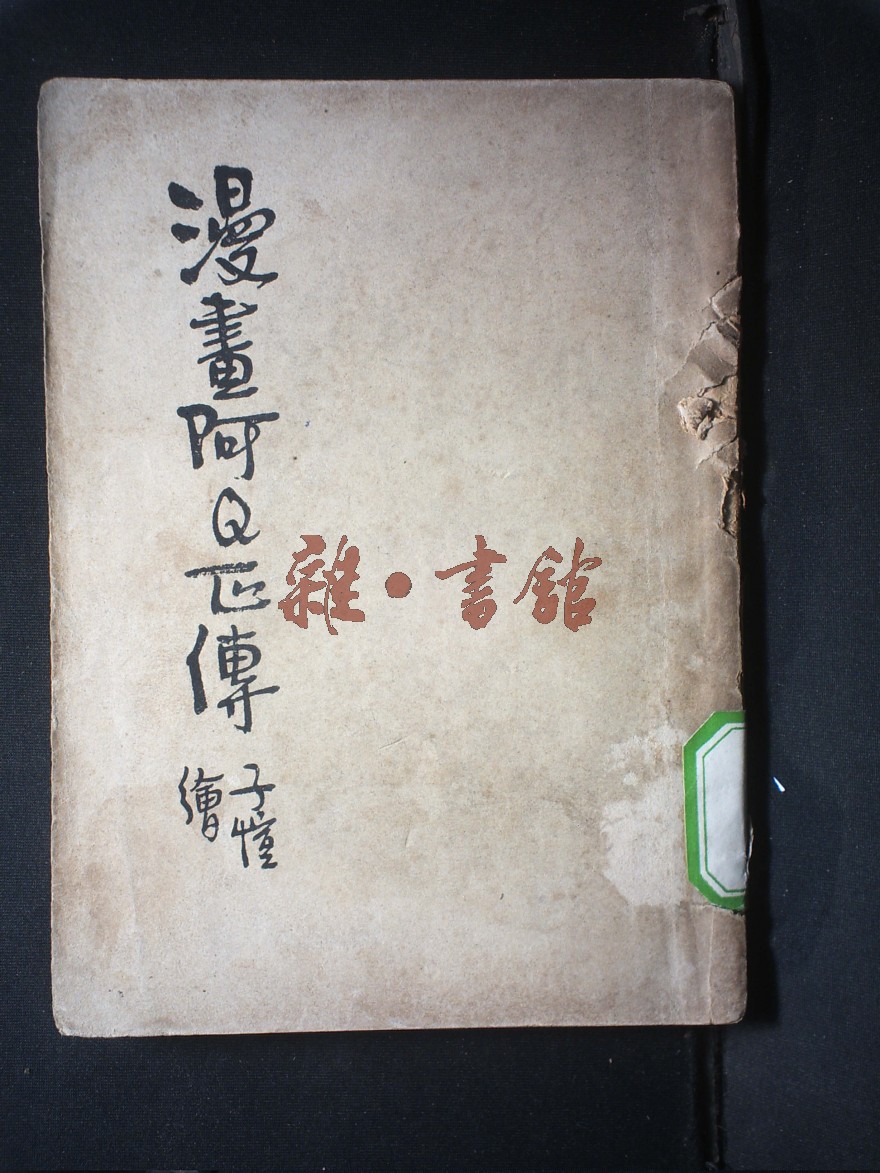 漫畫阿Q正傳
子愷
繪
雜•書館